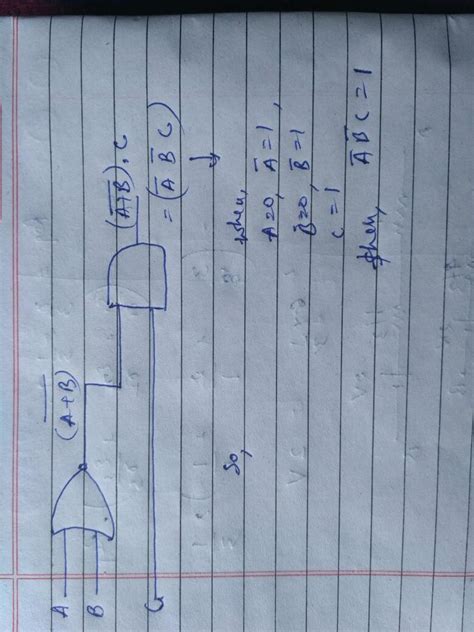 A
B
C
(A̅+̅B̅)
(A̅+̅B̅).C
= (A̅ B̅ C)
↓
So,
when,
A=0, A̅=1,
B=0, B̅=1
C=1
then, A̅ B̅ C = 1